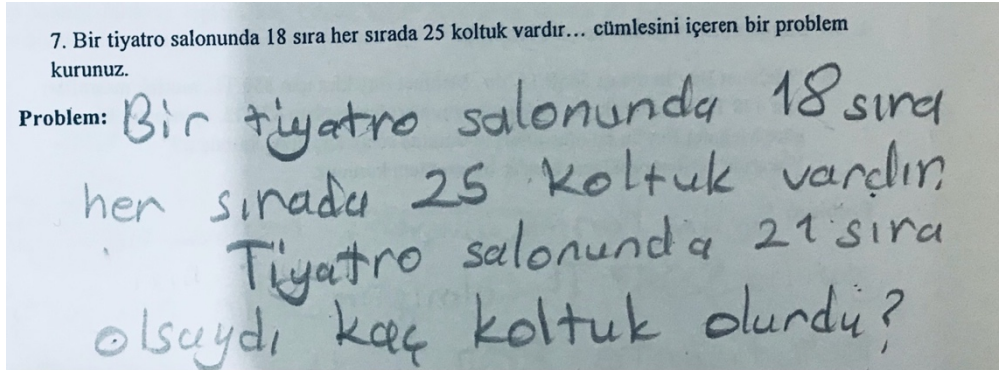 7. Bir tiyatro salonunda 18 sıra her sırada 25 koltuk vardır… cümlesini içeren bir problem
kurunuz.
Problem: Bir tiyatro salonunda 18 sıra
her sırada 25 koltuk vardır.
Tiyatro salonunda 21 sıra
olsaydı kaç koltuk olurdu?